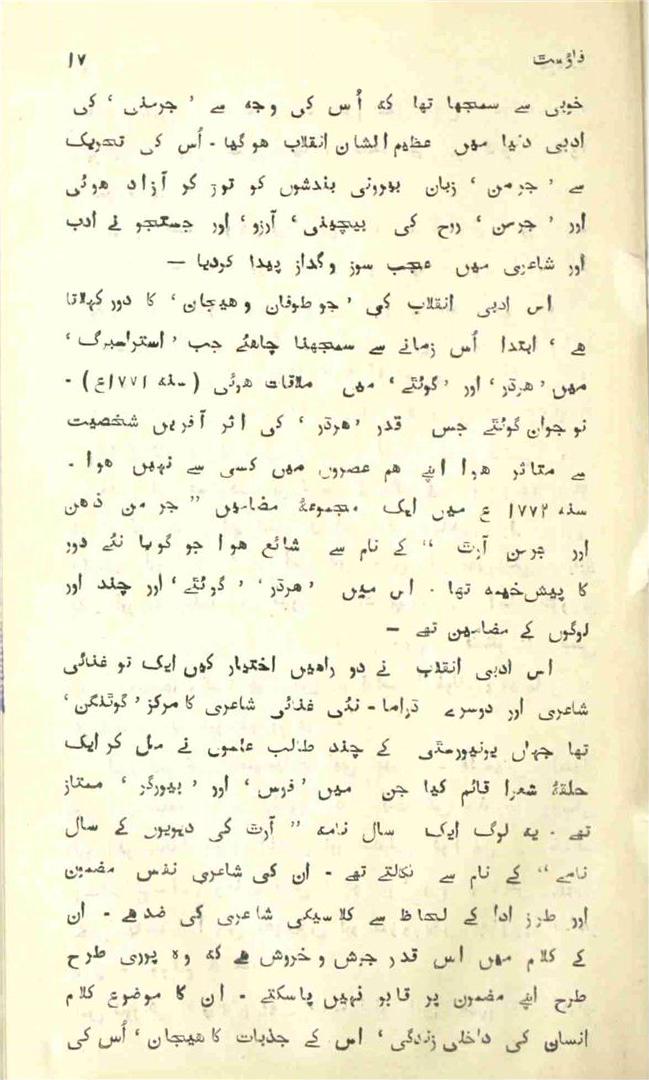 فاؤست ۱۷
خوبی سے سمجھا تھا کہ اُس کی وجہ سے ’ جرمنی ‘ کی
ادبی دنیا میں عظیم الشان انقلاب ہوگیا ۔ اُس کی تحریک
سے ’ جرمن ‘ زبان بیرونی بندشوں کو توڑ کر آزاد ہوئی
اور ’ جرمن ‘ روح کی بیچینی ‘ آرزو ‘ اور جستجو نے ادب
اور شاعری میں عجب سوز و گداز پیدا کردیا —
اس ادبی انقلاب کی ’ جو طوفان و ہیجان ‘ کا دور کہلاتا
ہے ‘ ابتدا اُس زمانے سے سمجھنا چاہئے جب ’ استراسبرگ ‘
میں ’ ہرڈر ‘ اور ’ گوئٹے ‘ میں ملاقات ہوئی ( سنہ ۱۷۷۱ع ) ۔
نوجوان گوئٹے جس قدر ’ ہرڈر ‘ کی اثر آفریں شخصیت
سے متاثر ہوا اپنے ہم عصروں میں کسی سے نہیں ہوا ۔
سنہ ۱۷۷۲ ع میں ایک مجموعۂ مضامیں ” جرمن ذہن
اور جرمن آرٹ “ کے نام سے شائع ہوا جو گویا نئے دور
کا پیش خیمہ تھا ۔ اس میں ’ ہرڈر ‘ ’ گوئٹے ‘ اور چند اور
لوگوں کے مضامین تھے —
اس ادبی انقلاب نے دو راہیں اختیار کیں ایک تو غنائی
شاعری اور دوسرے ڈراما ۔ نئی غنائی شاعری کا مرکز ’ گوٹنگن ‘
تھا جہاں یونیورسٹی کے چند طالب علموں نے مل کر ایک
حلقۂ شعرا قائم کیا جن میں ’ فوس ‘ اور ’ بیورگر ‘ ممتاز
تھے ۔ یہ لوگ ایک سال نامہ ” آرٹ کی دیویوں کے سال
نامے “ کے نام سے نکالتے تھے ۔ ان کی شاعری نفس مضمون
اور طرز ادا کے لحاظ سے کلاسیکی شاعری کی ضد ہے ۔ ان
کے کلام میں اس قدر جوش و خروش ہے کہ وہ پوری طرح
طرح اپنے مضمون پر قابو نہیں پاسکتے ۔ ان کا موضوع کلام
انسان کی داخلی زندگی ‘ اس کے جذبات کا ہیجان ‘ اُس کی